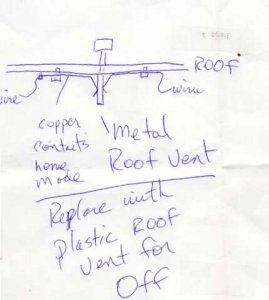 ROOF
wire
wire
copper
contacts
home
mode
Metal
Roof Vent
Replace with
Plastic Roof
Vent for
Off